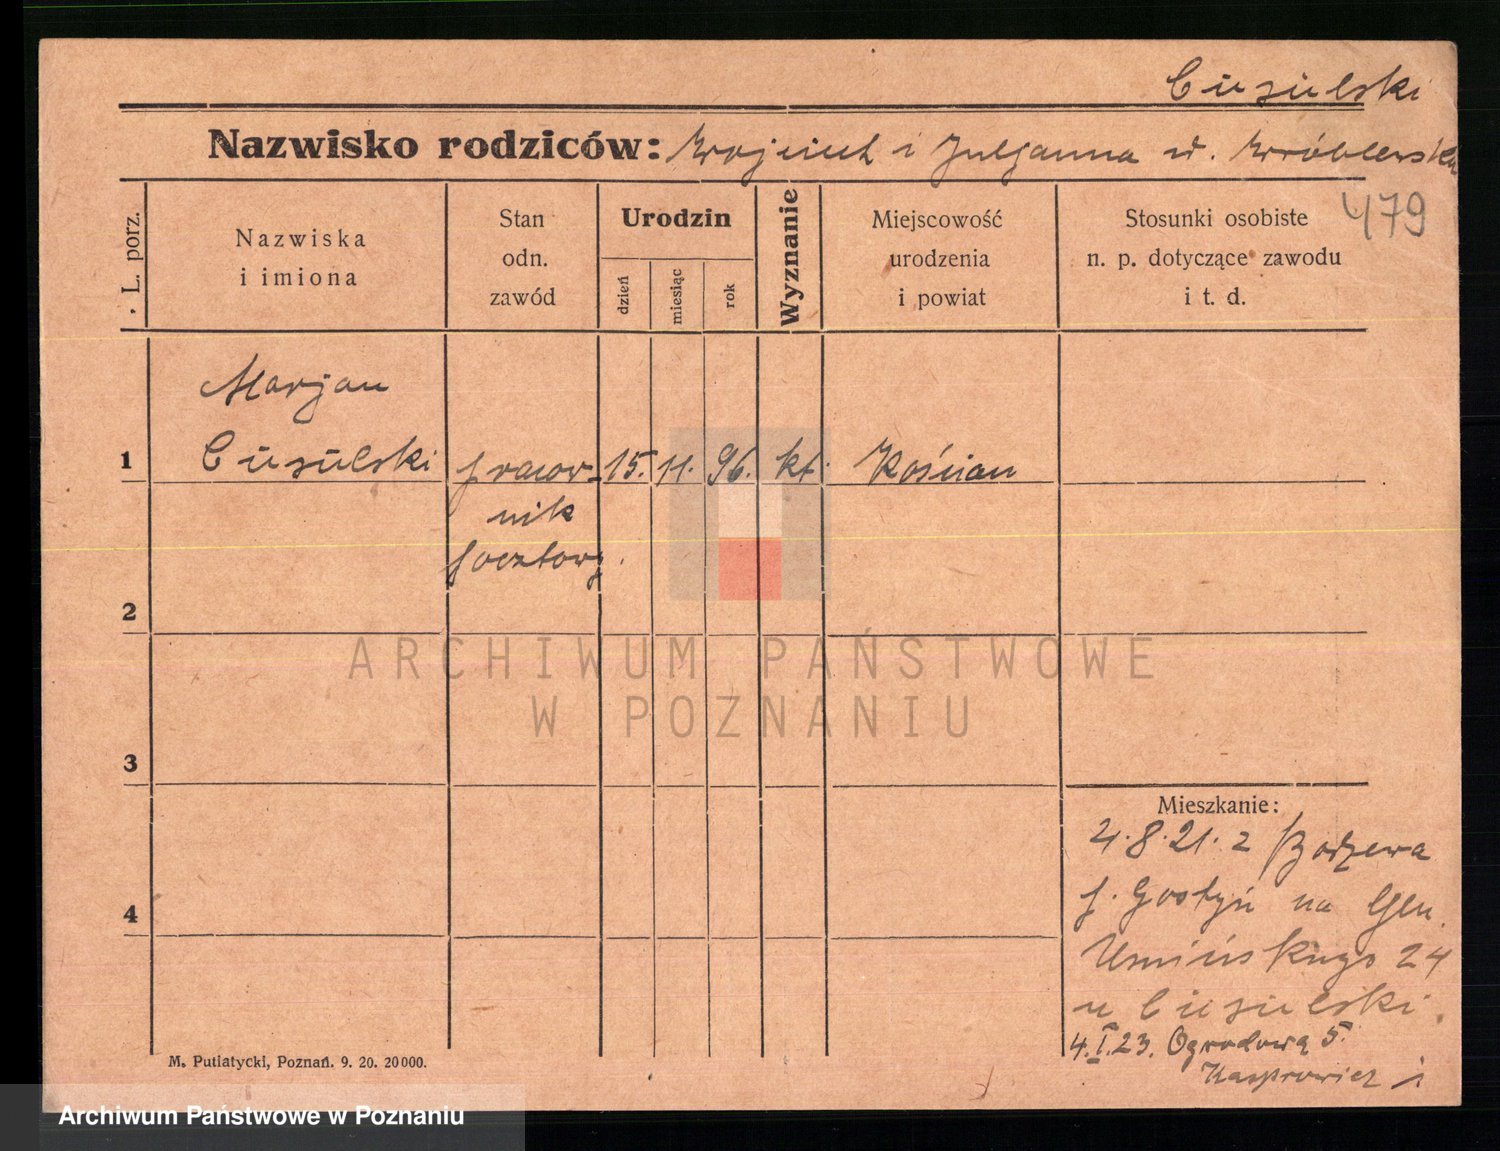 Ciesielski
Nazwisko rodziców: Wojciech i Juljanna ur. Wróblewska
479
L. porz.
Nazwiska i imiona
Stan odn. zawód
Urodzin
dzień
miesiąc
rok
Wyznanie
Miejscowość urodzenia i powiat
Stosunki osobiste n. p. dotyczące zawodu i t. d.
Marjan
1 Ciesielski pracow- 15. 11. 96. kt. Kościan
nik
pocztowy.
2
ARCHIWUM PAŃSTWOWE
W POZNANIU
3
Mieszkanie:
4.8.21. z Bodzewa
4 p. Gostyń na Gen.
Umińskiego 24
u Ciesielski.
4.I.23. Ogrodową 5.
Kasprowicz
M. Putiatycki, Poznań. 9. 20. 20000.
Archiwum Państwowe w Poznaniu